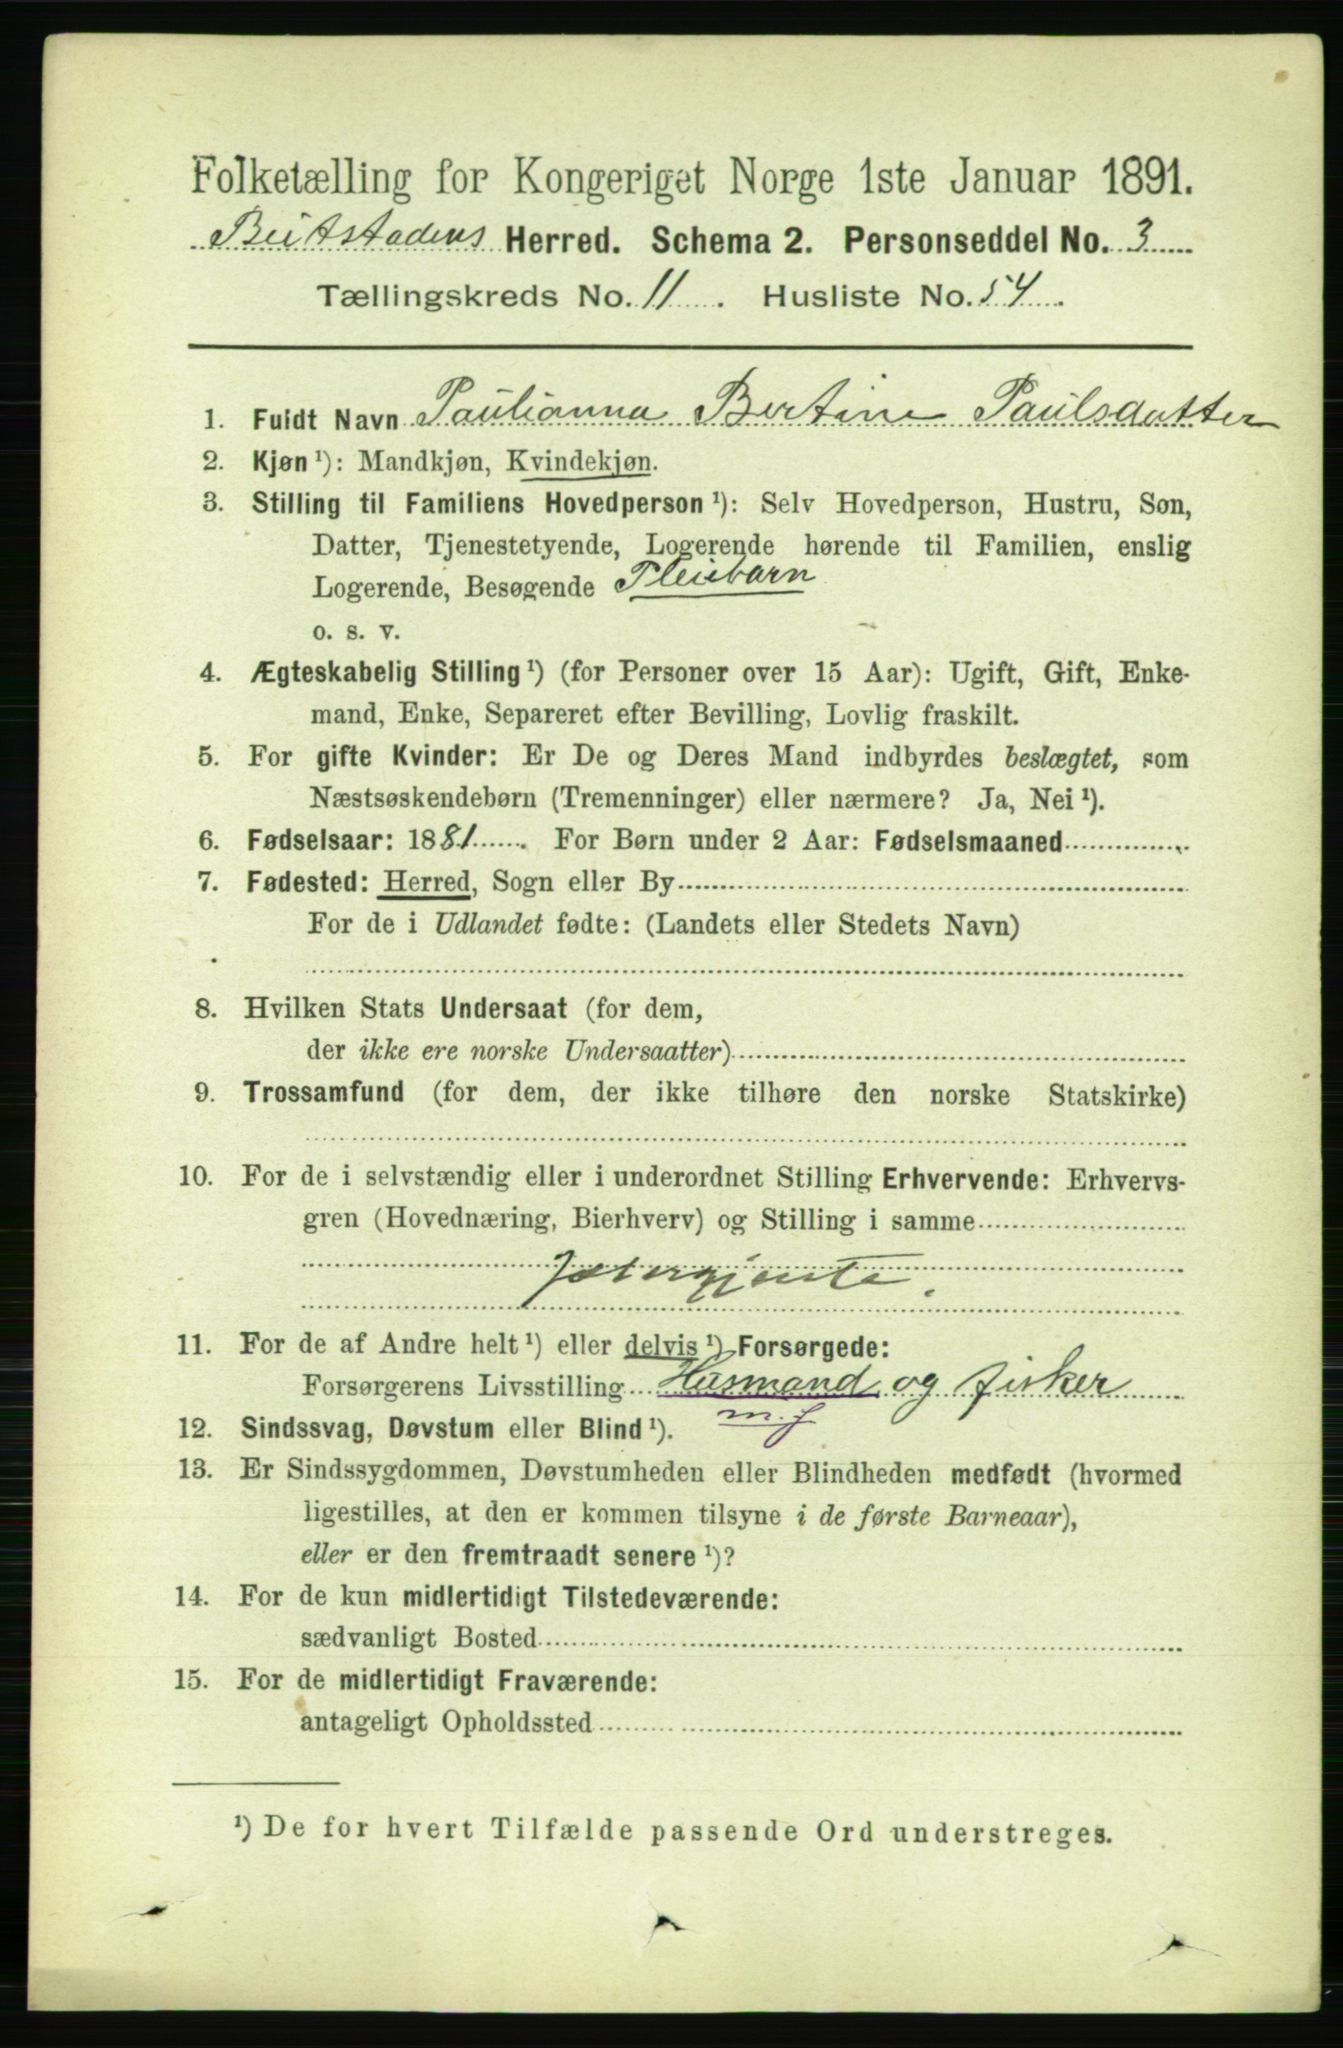 Folketælling for Kongeriget Norge 1ste Januar 1891.
Beitstadens Herred. Schema 2. Personseddel No. 3
Tællingskreds No. 11. Husliste No. 54.
1. Fuldt Navn Paulianna Bertine Paulsdatter
2. Kjøn ¹): Mandkjøn, Kvindekjøn.
3. Stilling til Familiens Hovedperson ¹): Selv Hovedperson, Hustru, Søn,
Datter, Tjenestetyende, Logerende hørende til Familien, enslig
Logerende, Besøgende Pleiebarn
o. s. v.
4. Ægteskabelig Stilling ¹) (for Personer over 15 Aar): Ugift, Gift, Enke-
mand, Enke, Separeret efter Bevilling, Lovlig fraskilt.
5. For gifte Kvinder: Er De og Deres Mand indbyrdes beslægtet, som
Næstsøskendebørn (Tremenninger) eller nærmere? Ja, Nei ¹).
6. Fødselsaar: 1881. For Børn under 2 Aar: Fødselsmaaned
7. Fødested: Herred, Sogn eller By
For de i Udlandet fødte: (Landets eller Stedets Navn)
8. Hvilken Stats Undersaat (for dem,
der ikke ere norske Undersaatter)
9. Trossamfund (for dem, der ikke tilhøre den norske Statskirke)
10. For de i selvstændig eller i underordnet Stilling Erhvervende: Erhvervs-
gren (Hovednæring, Bierhverv) og Stilling i samme
Jætergjente.
11. For de af Andre helt ¹) eller delvis ¹) Forsørgede:
Forsørgerens Livsstilling Husmand og fisker
m. J
12. Sindssvag, Døvstum eller Blind ¹).
13. Er Sindssygdommen, Døvstumheden eller Blindheden medfødt (hvormed
ligestilles, at den er kommen tilsyne i de første Barneaar),
eller er den fremtraadt senere ¹)?
14. For de kun midlertidigt Tilstedeværende:
sædvanligt Bosted
15. For de midlertidigt Fraværende:
antageligt Opholdssted
¹) De for hvert Tilfælde passende Ord understreges.